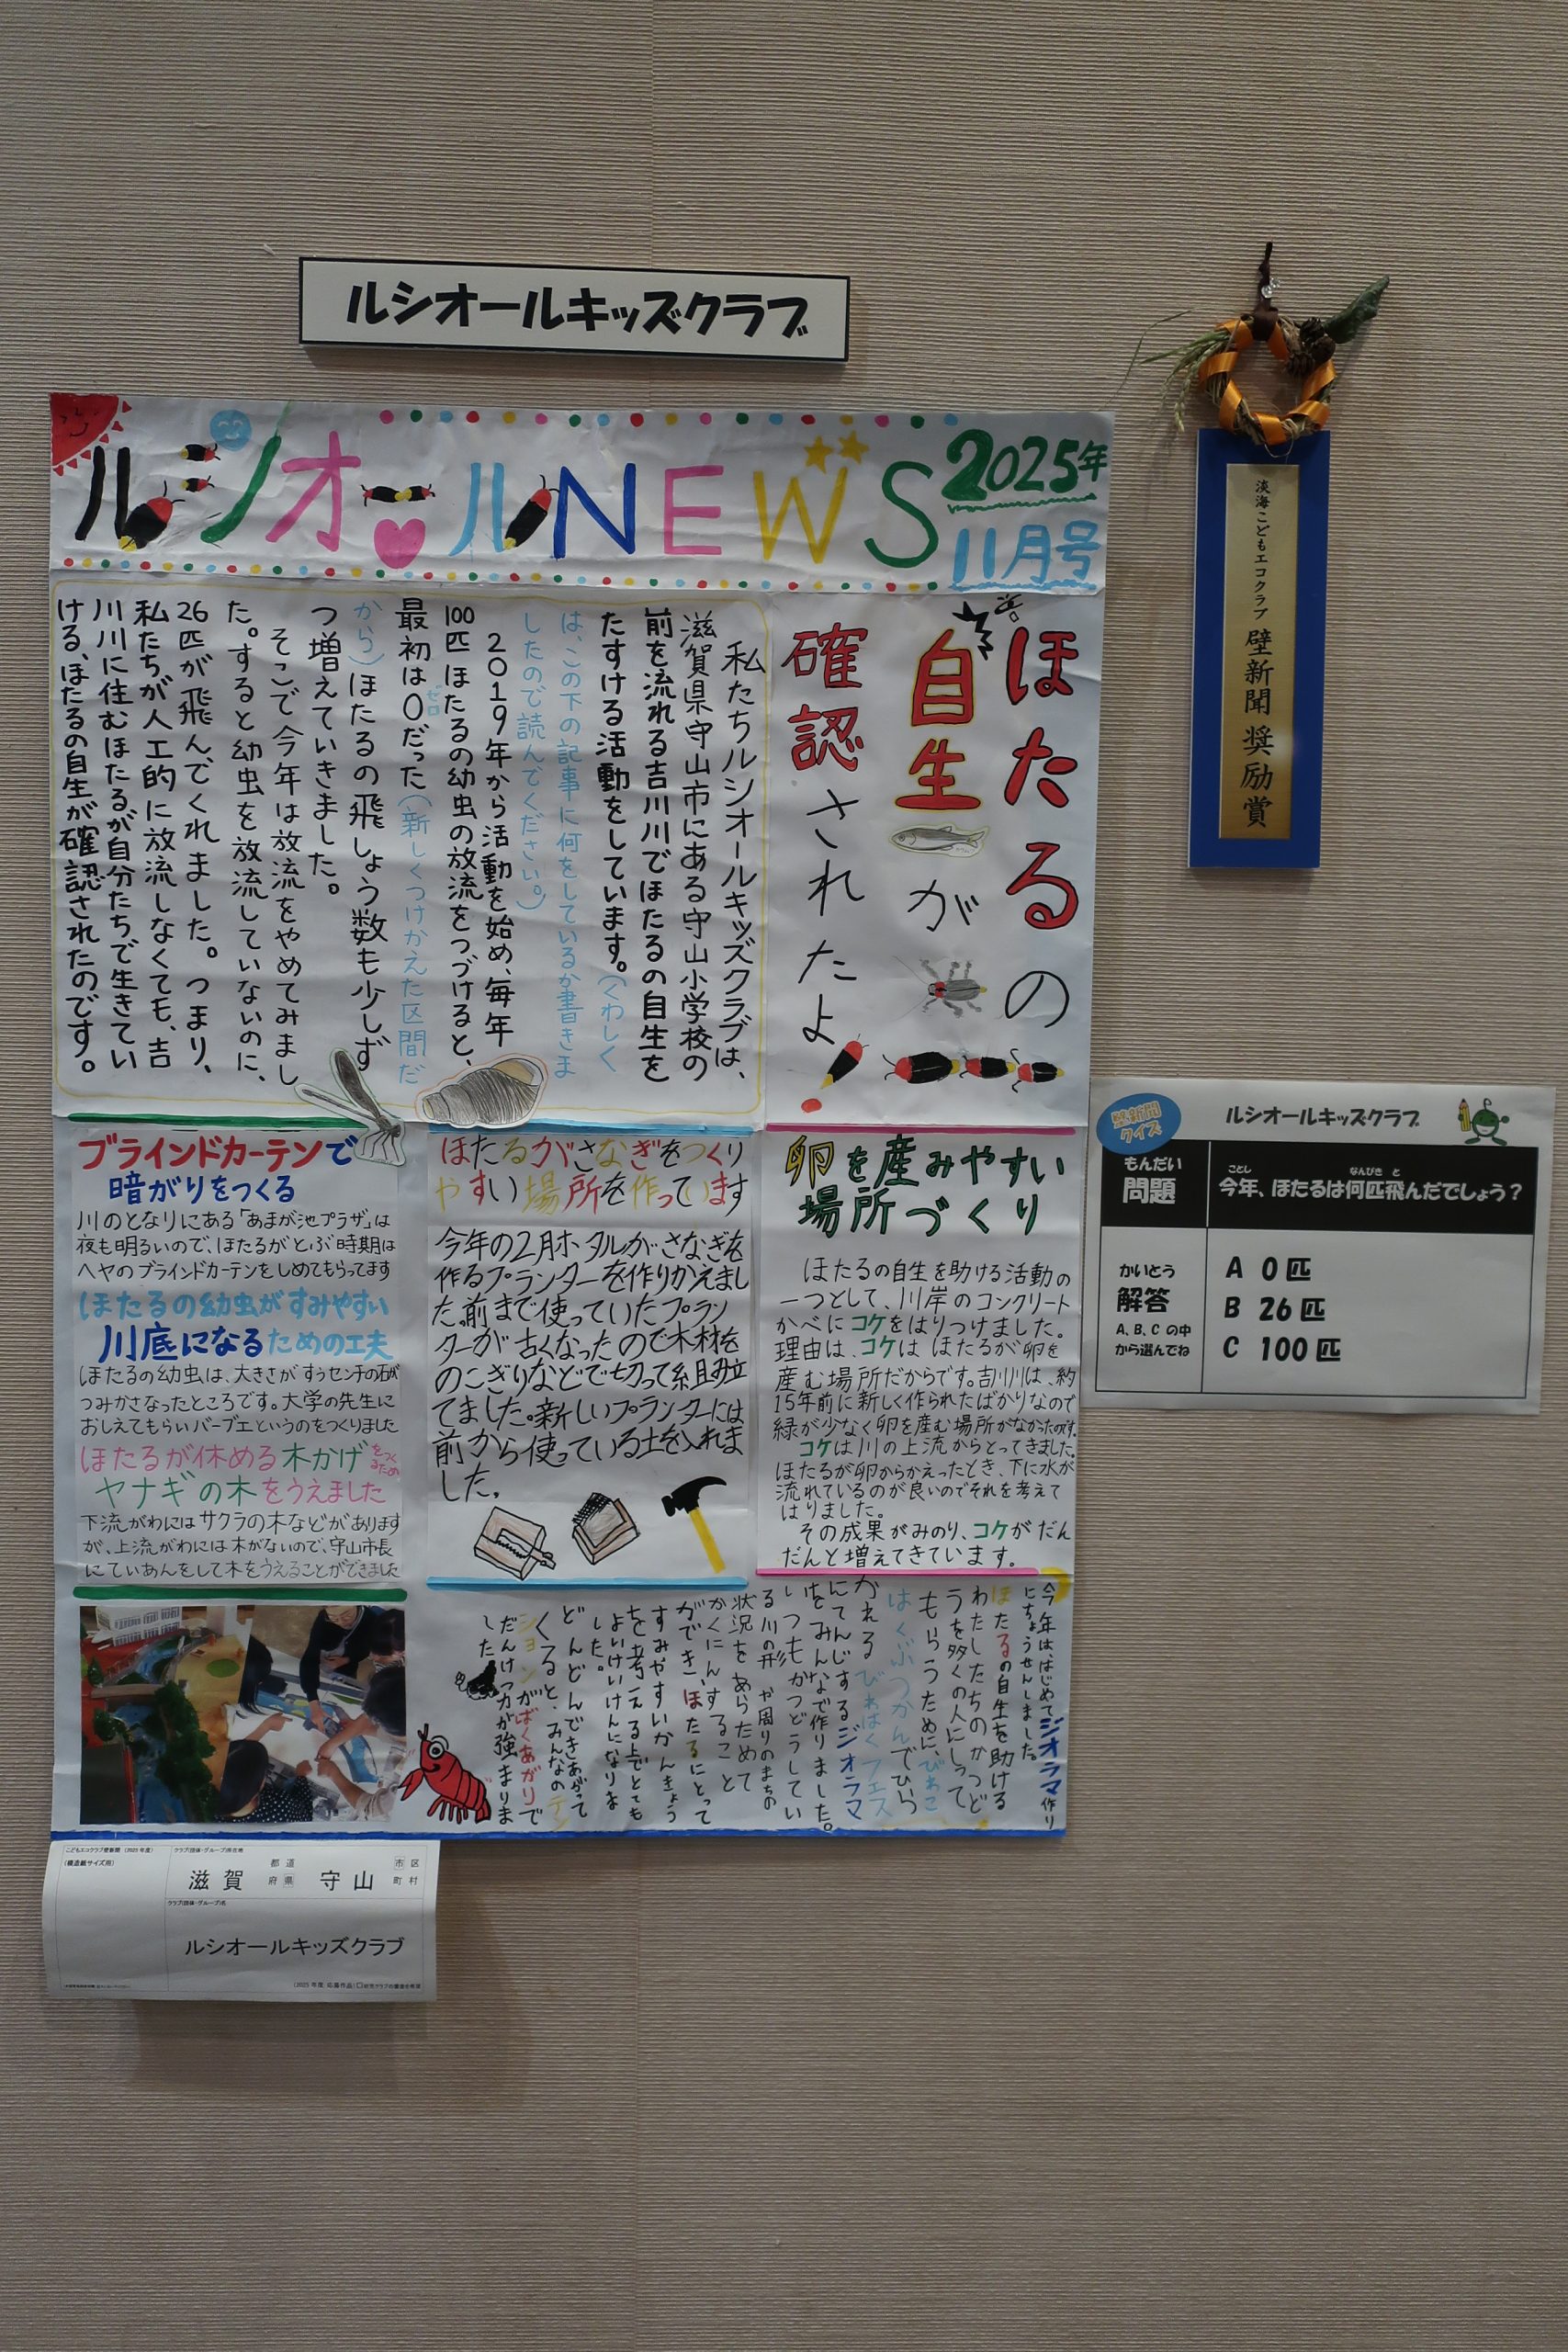 ルシオールキッズクラブ
ルシオールNEWS
2025年
11月号
ほたるの
自生が
確認されたよ
私たちルシオールキッズクラブは、
滋賀県守山市にある守山小学校の
前を流れる吉川川でほたるの自生を
たすける活動をしています。(くわしく
は、この下の記事に何をしているか書きま
したので読んでください。)
2019年から活動を始め、毎年
100匹ほたるの幼虫の放流をつづけると、
最初は0だった(新しくつけかえた区間だ
ゼロ
から)ほたるの飛しょう数も少しず
つ増えていきました。
そこで今年は放流をやめてみまし
た。すると幼虫を放流していないのに、
26匹が飛んでくれました。つまり、
私たちが人工的に放流しなくても、吉
川川に住むほたるが自分たちで生きてい
ける、ほたるの自生が確認されたのです。
ブラインドカーテンで
暗がりをつくる
川のとなりにある「あまが池プラザ」は
夜も明るいので、ほたるがとぶ時期は
ヘヤのブラインドカーテンをしめてもらってます
ほたるの幼虫がすみやすい
川底になるための工夫
ほたるの幼虫は、大きさがすうセンチの石が
つみかさなったところです。大学の先生に
おしえてもらいバーブエというのをつくりました
ほたるが休める木かげをつくるため
ヤナギの木をうえました
下流がわにはサクラの木などがあります
が、上流がわには木がないので、守山市長
にていあんをして木をうえることができました
ほたるがさなぎをつくり
やすい場所を作っています
今年の2月ホタルがさなぎを
作るプランターを作りかえまし
た。前まで使っていたプラン
ターが古くなったので木材を
のこぎりなどで切って組み立
てました。新しいプランターには
前から使っている土を入れま
した。
卵を産みやすい
場所づくり
ほたるの自生を助ける活動の
一つとして、川岸のコンクリート
かべにコケをはりつけました。
理由は、コケはほたるが卵を
産む場所だからです。吉川川は、約
15年前に新しく作られたばかりなので
緑が少なく卵を産む場所がなかたのです。
コケは川の上流からとってきました。
ほたるが卵からかえったとき、下に水が
流れているのが良いのでそれを考えて
はりました。
その成果がみのり、コケがだん
だんと増えてきています。
今年は、はじめてジオラマ作り
にちょうせんしました。
ほたるの自生を助ける
わたしたちのかつど
うを多くの人にしって
もらうために、びわこ
はくぶつかんでひら
かれるびわはくフェス
にてんじするジオラマ
をみんなで作りました。
いつもかつどうしてい
る川の形や周りのまちの
状況をあらためて
かくにんすること
ができ、ほたるにとって
すみやすいかんきょう
を考える上でとても
よいけいけんになりま
した。
どんどんできあがって
くると、みんなのテン
ションがばくあがりで
だんけつ力が強まりま
した
こどもエコクラブ壁新聞 (2025年度)
(模造紙サイズ用)
クラブ(団体・グループ)所在地
滋賀 都道府県 守山 市区町村
クラブ(団体・グループ)名
ルシオールキッズクラブ
淡海こどもエコクラブ 壁新聞 奨励賞
壁新聞
クイズ
ルシオールキッズクラブ
もんだい
問題
ことし なんびき と
今年、ほたるは何匹飛んだでしょう?
かいとう
解答
A、B、Cの中
から選んでね
A 0匹
B 26匹
C 100匹